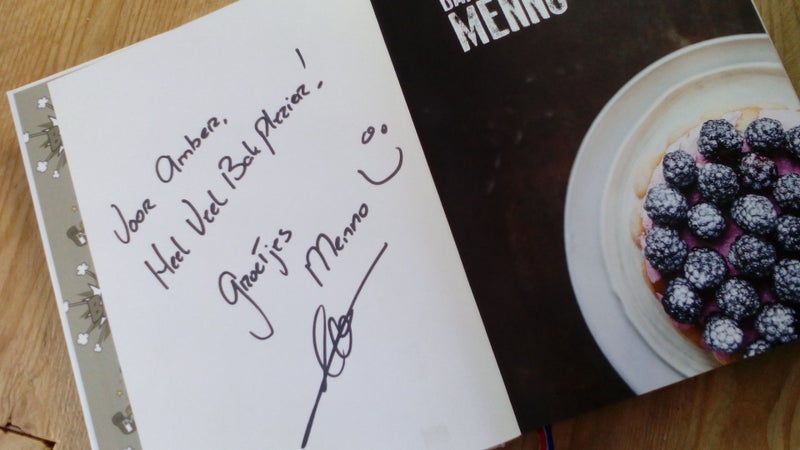 MENNO
Voor Amber,
Heel Veel Bak plezier!
Groetjes
Menno